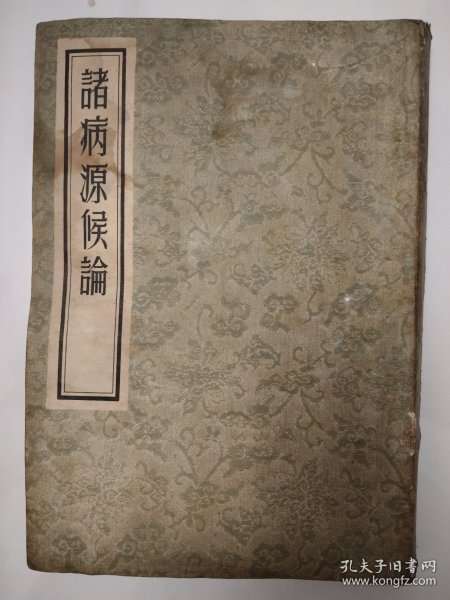 諸病源候論
孔夫子旧书网
www.kongfz.com